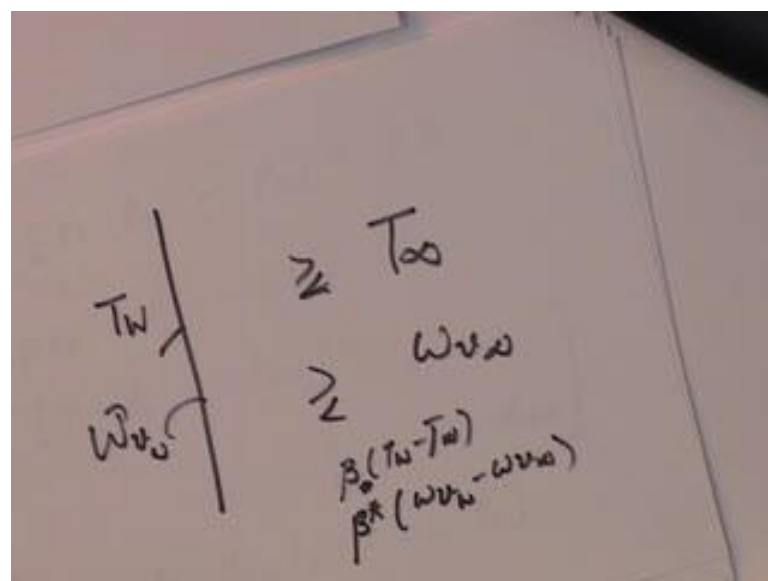 ≥ T∞
T_w
≥ ω_v∞
ω_v_w
β(T_w - T_∞)
β*(ω_v_w - ω_v∞)